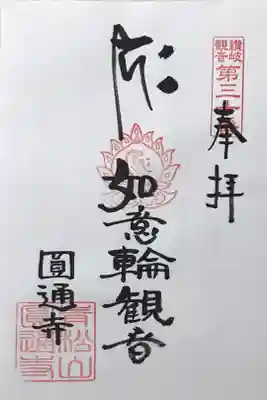 讃岐
観音
第三
奉拝
如意輪観音
圓通寺
青松山
圓通寺